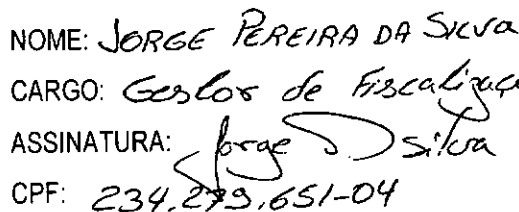 NOME: JORGE PEREIRA DA SILVA
CARGO: Gestor de Fiscalizaçã
ASSINATURA: Jorge P. D silva
CPF: 234.279.651-04